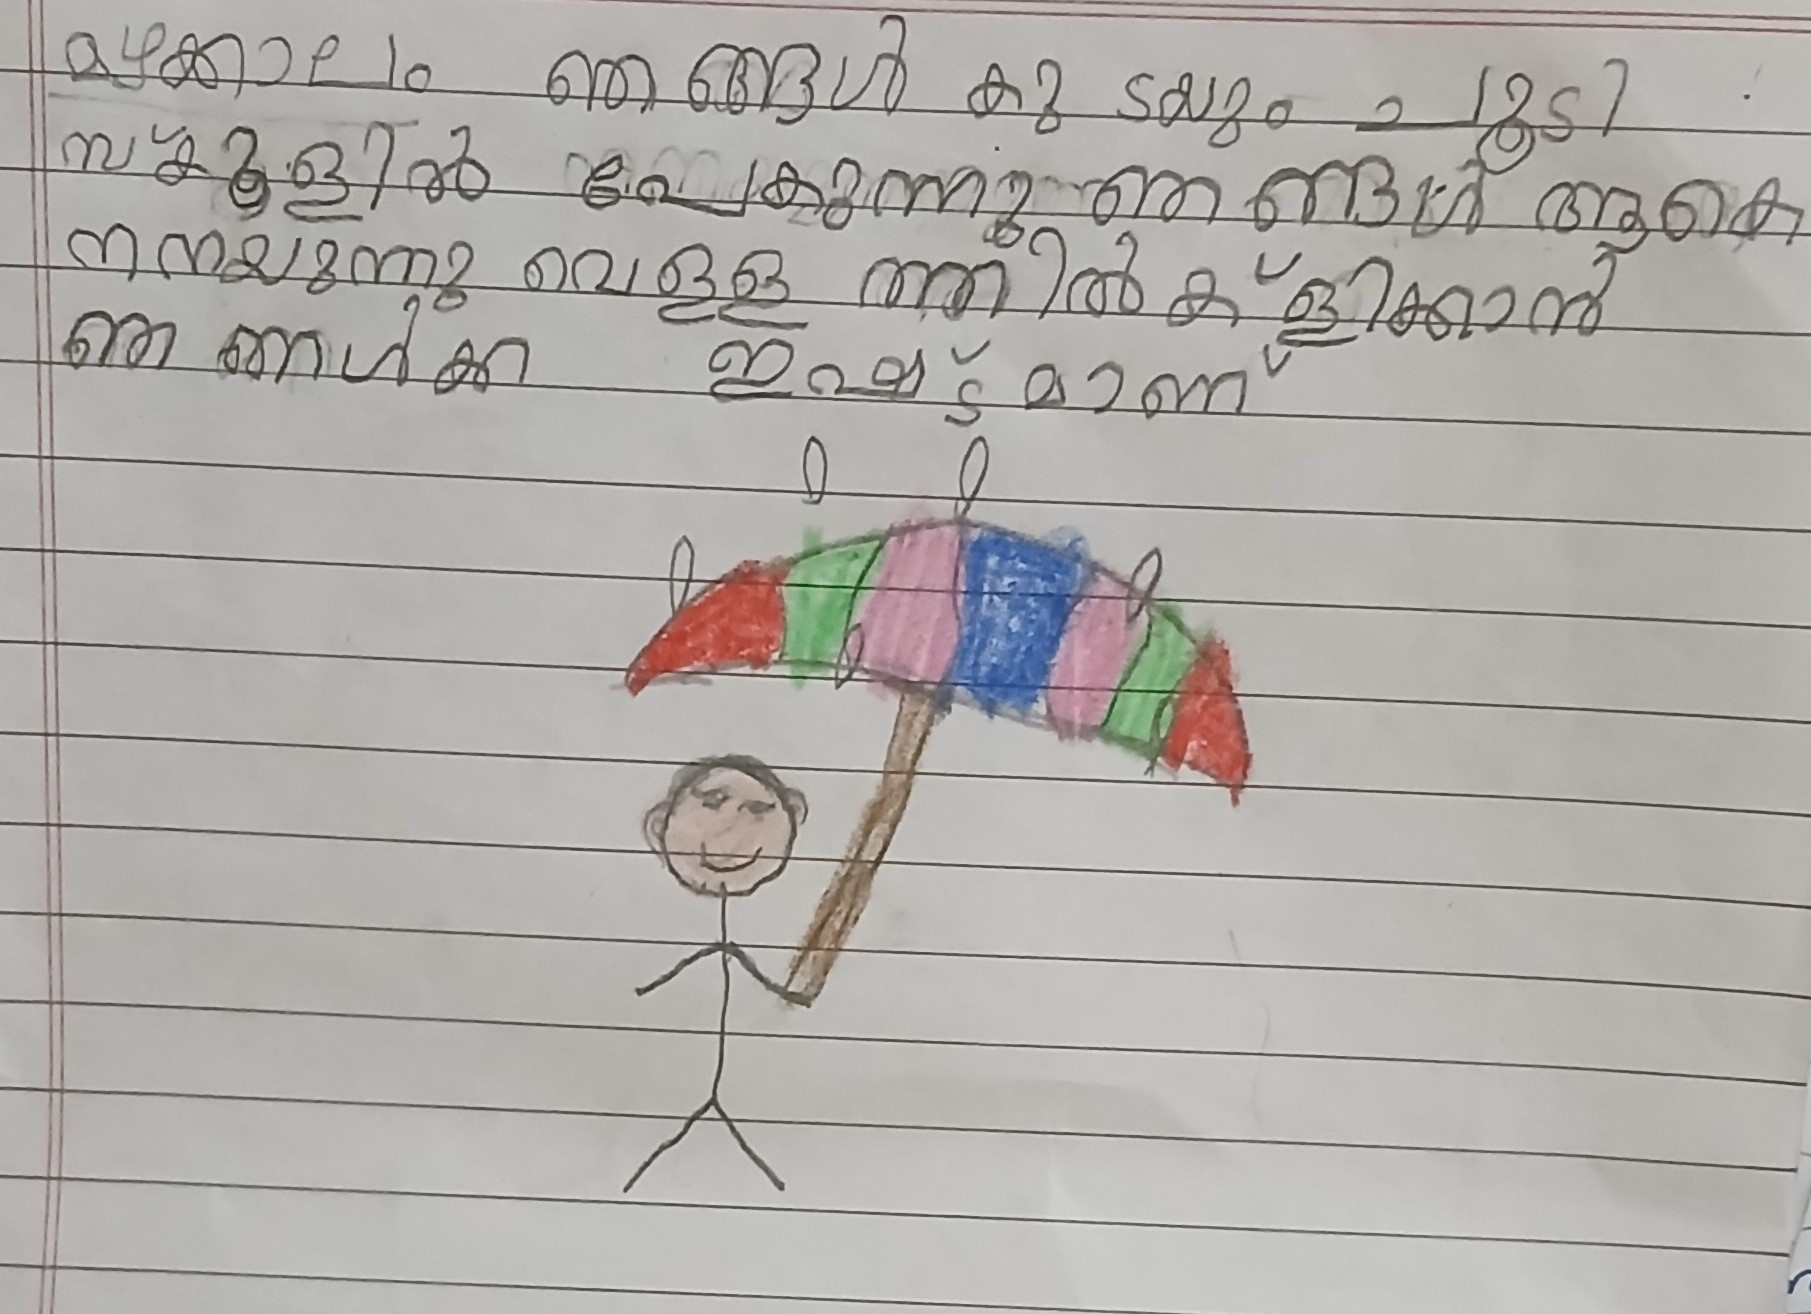 മഴക്കാലം ഞങ്ങൾ കുടയും ചൂടി
സ്കൂളിൽ പോകുന്നു ഞങ്ങൾ ആകെ
നനയുന്നു വെള്ളത്തിൽ ക്ളിക്കാൻ
ഞങ്ങൾക്ക ഇഷ്ട്മാണ്